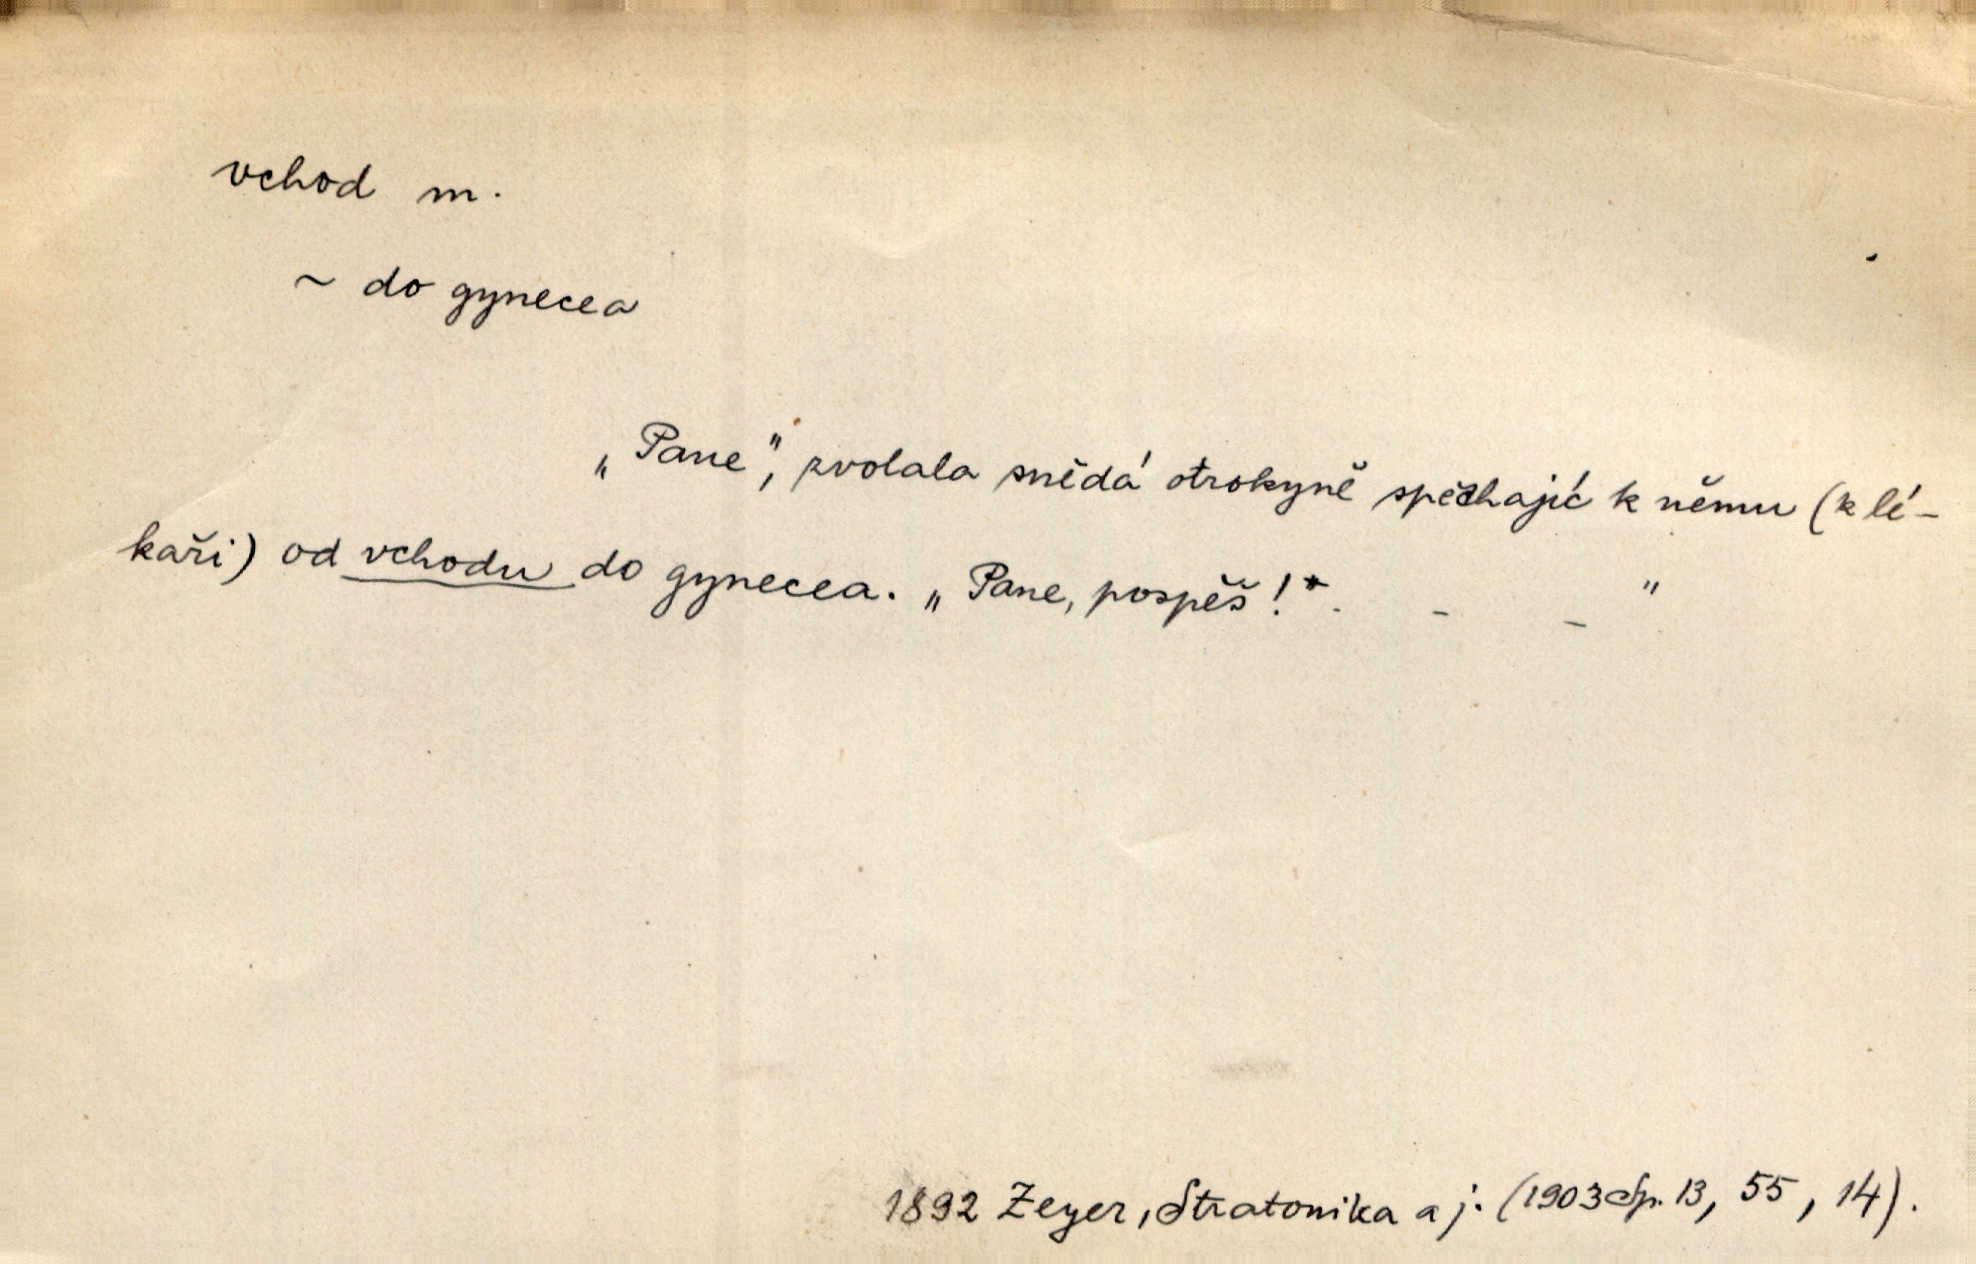 vchod m.
~ do gynecea
„Pane", zvolala snědá otrokyně spěchajíc k němu (k lé-
kaři) od vchodu do gynecea. „Pane, pospěš!". - - "
1892 Zeyer, Stratonika a j. (1903 Sp. 13, 55, 14).